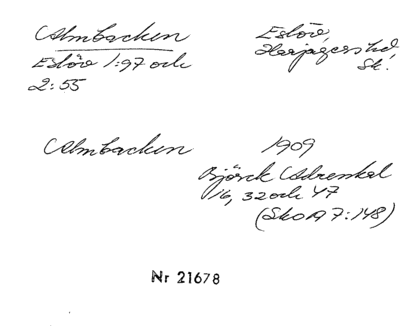 Almbacken Eslöv,
Eslöv 1:97 och Harjagers hd
2:55 Sk.
Almbacken 1909
Björck
16, 32 och 47
(SkOA 7:148)
Nr 21678